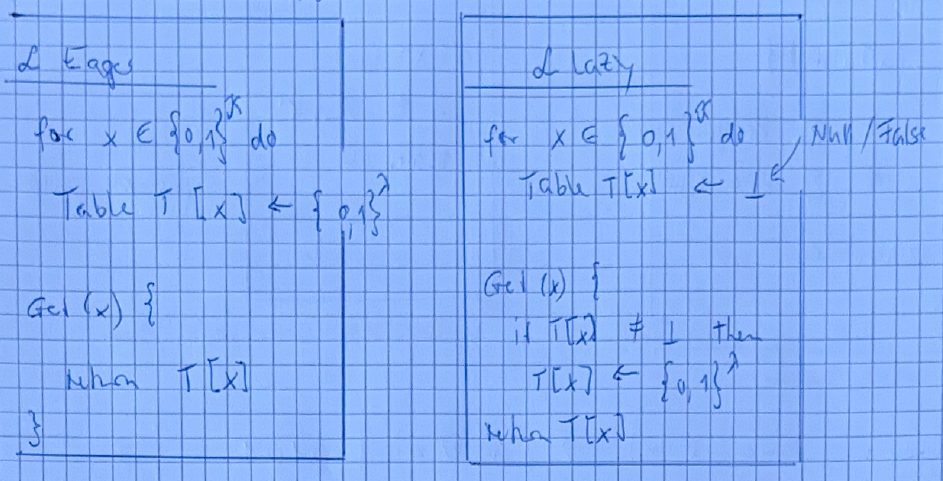 L Eager
for x ∈ {0,1}^κ do
Table T[x] ← {0,1}^λ
Get (x) {
return T[x]
}
L lazy
for x ∈ {0,1}^κ do
Table T[x] ← ⊥
Null / False
Get (x) {
if T[x] ≠ ⊥ then
T[x] ← {0,1}^λ
return T[x]